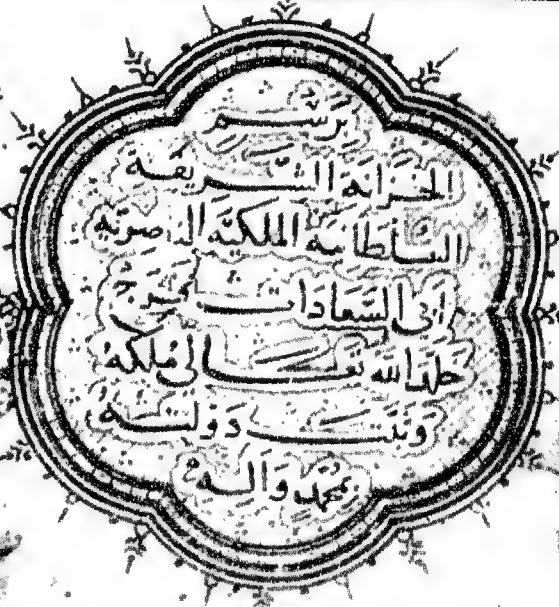 بِرَسْم
الخزانة الشريفة
السلطانية الملكية الناصرية
أبي السعادات فرج
خلد الله تعالى ملكه
وثبت دولته
بمحمد وآله